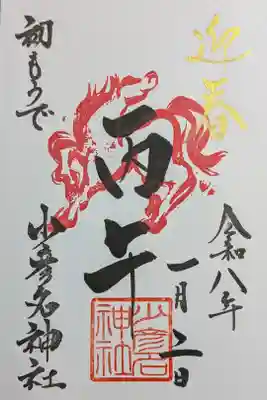 迎春
令和八年
一月二日
丙午
初もうで
少彦名神社
少彦名
神社